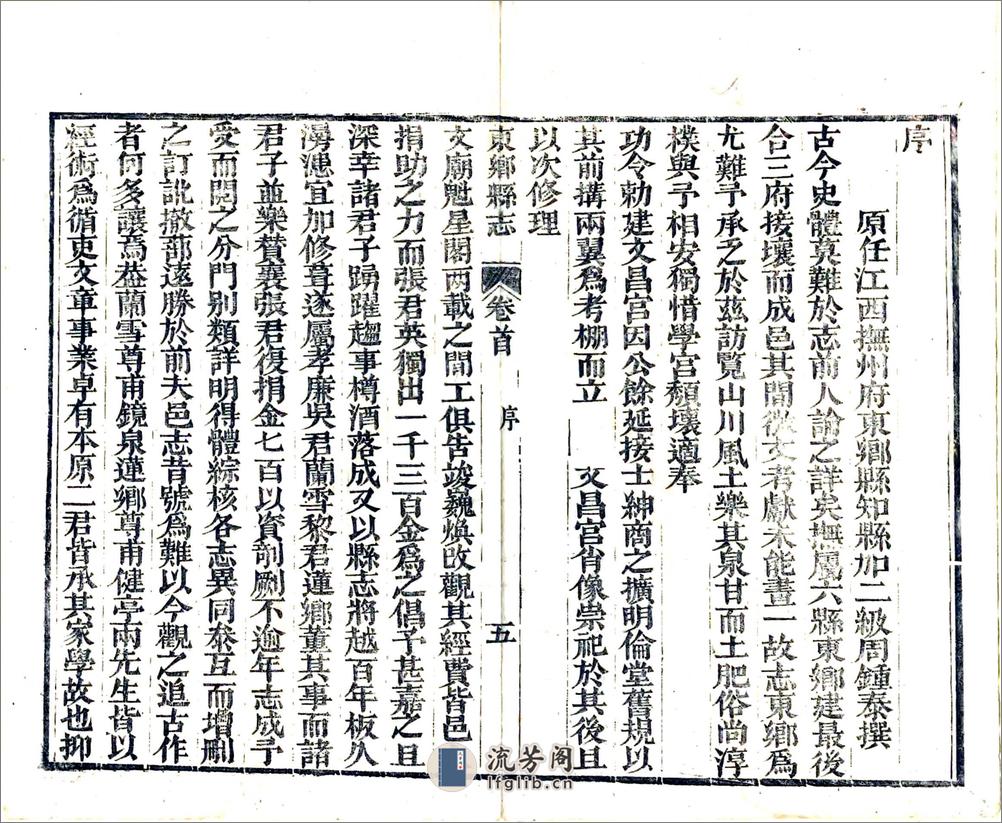 序
原任江西撫州府東鄉縣知縣加二級周鍾泰撰
古今史體莫難於志前人論之詳矣撫屬六縣東鄉建最後
合三府接壤而成邑其間徵文考獻未能畫一故志東鄉爲
尤難予承乏於茲訪覽山川風土樂其泉甘而土肥俗尚淳
樸與予相安獨惜學宮頹壞適奉
功令勅建文昌宮因公餘延接士紳商之擴明倫堂舊規以
其前搆兩翼爲考棚而立 文昌宮肖像崇祀於其後且
以次修理
東鄉縣志 卷首 序 五
文廟魁星閣两載之間工俱告竣巍煥改觀其經費皆邑
捐助之力而張君英獨出一千三百金爲之倡予甚嘉之且
深幸諸君子踴躍趨事樽酒落成又以縣志將越百年板久
漫漶宜加修葺遂屬孝廉吳君蘭雪黎君蓮鄉董其事而諸
君子並樂賛襄張君復捐金七百以資剞劂不逾年志成予
受而閱之分門别類詳明得體綜核各志異同叅互而增刪
之訂訛撤蔀遠勝於前夫邑志昔號爲難以今觀之追古作
者何多讓焉葢蘭雪尊甫鏡泉蓮鄉尊甫健亭兩先生皆以
經術爲循吏文章事業卓有本原二君皆承其家學故也抑
流芳阁
lfglib.cn